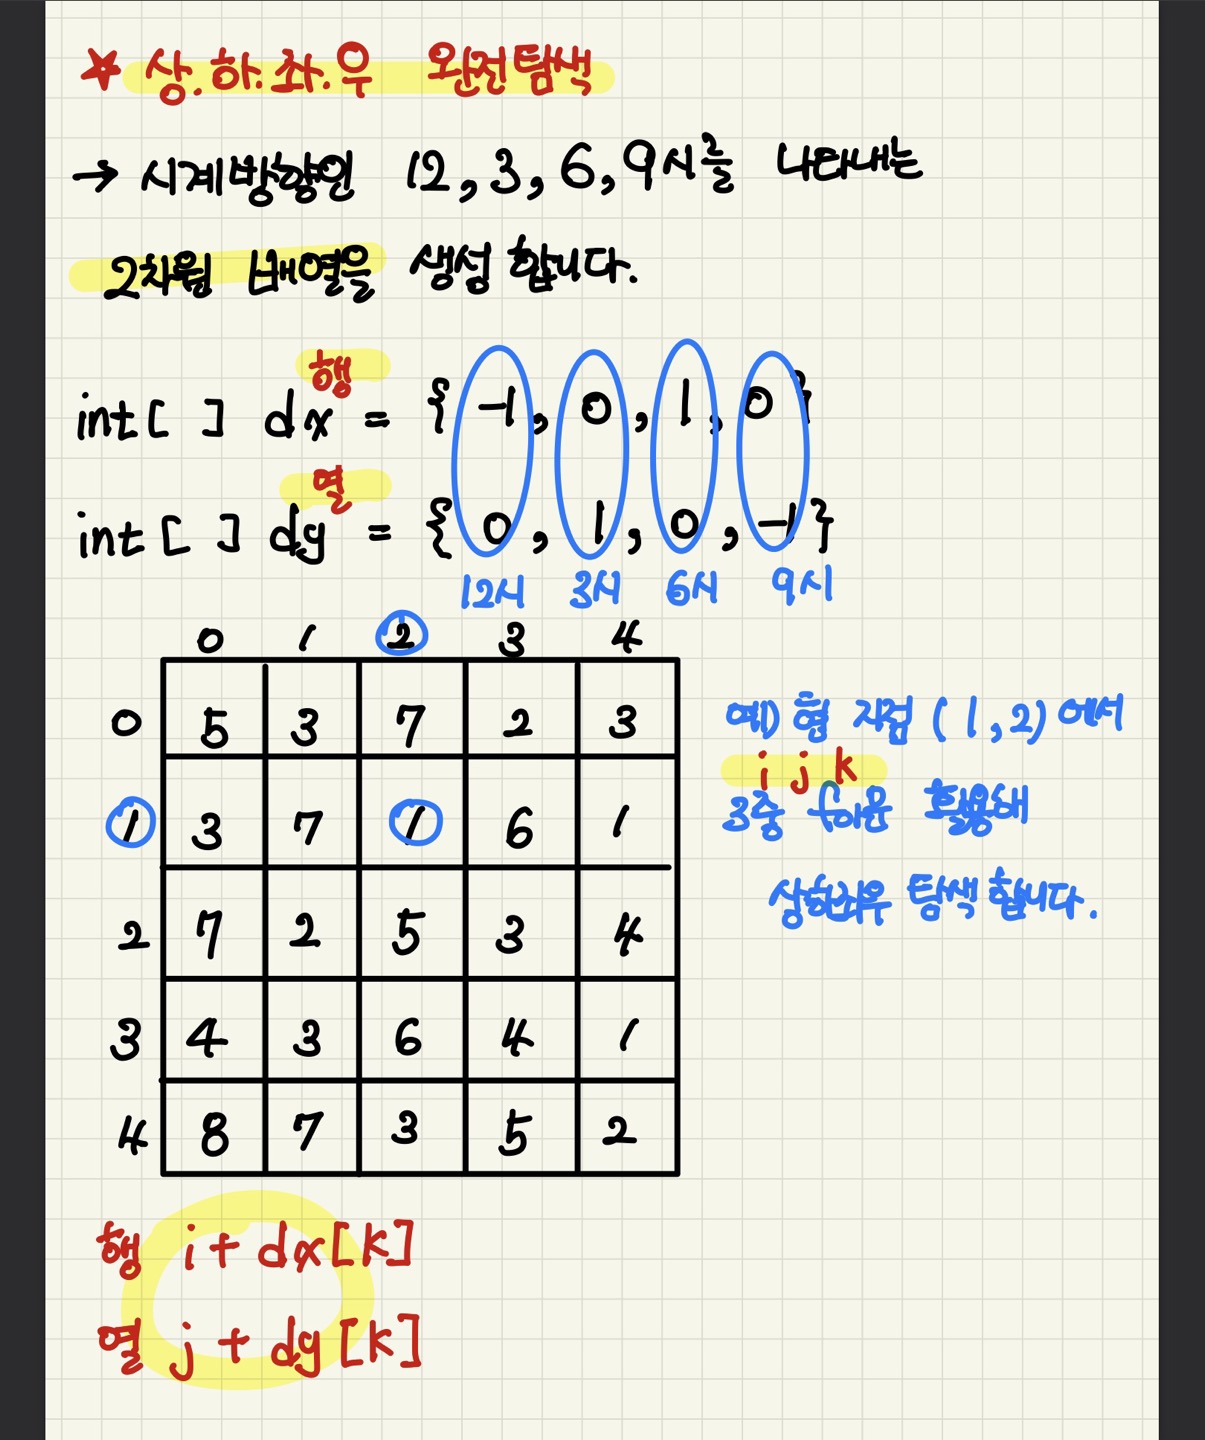 ★ 상.하.좌.우 완전탐색
→ 시계방향인 12, 3, 6, 9시를 나타내는
2차원 배열을 생성 합니다.
행
int[ ] dx = { -1, 0, 1, 0 }
열
int[ ] dy = { 0, 1, 0, -1 }
12시 3시 6시 9시
0 1 2 3 4
0 5 3 7 2 3
1 3 7 1 6 1
2 7 2 5 3 4
3 4 3 6 4 1
4 8 7 3 5 2
예) 현 지점 (1, 2) 에서
i j k
3중 for문 활용해
상하좌우 탐색 합니다.
행 i + dx[k]
열 j + dy[k]